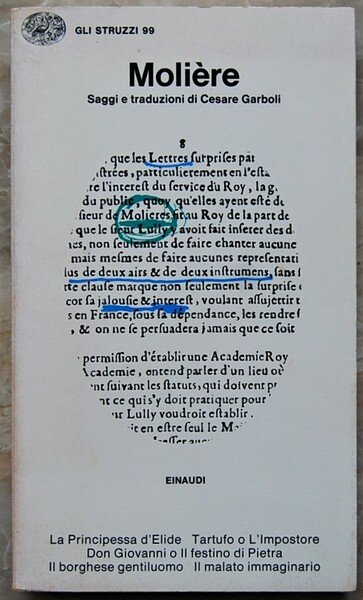 GLI STRUZZI 99
Molière
Saggi e traduzioni di Cesare Garboli
8
que les Lettres surprises par
istrées, particulierement en l'esta
re l'interest du service du Roy, la g
du public, quoy qu'elles ayent esté d
sieur de Molieres fit au Roy de la part de
que le sieur Lully avoit fait inserer des d
nes, non seulement de faire chanter aucune
mais mesmes de faire aucunes representati
lus de deux airs & de deux instrumens, sans
tte clause marque non seulement la surprise
cor sa jalousie & interest, voulant assujettir t
s en France, sous sa dépendance, les rendre
, & on ne se persuadera jamais que ce soit
permission d'établir une Academie Roy
Academie, entend parler d'un lieu où
nt suivant les statuts, qui doivent pr
nt ce qui s'y doit pratiquer pour
ur Lully voudroit establir
it en estre seul le
EINAUDI
La Principessa d'Elide Tartufo o L'Impostore
Don Giovanni o Il festino di Pietra
Il borghese gentiluomo Il malato immaginario